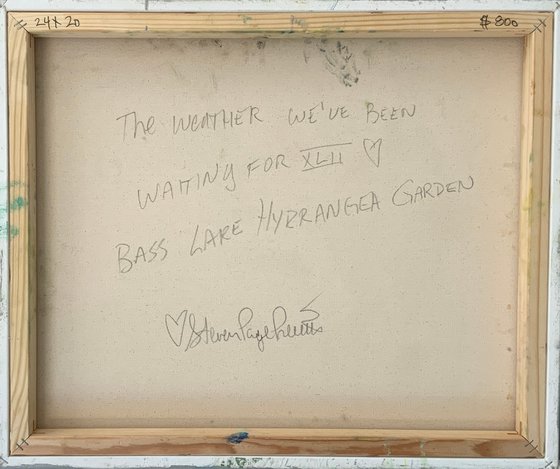 24X20
$800
The WEATHER WE'VE BEEN
WAITING FOR XLII ♡
BASS LAKE HYDRANGEA GARDEN
♡ Steven Page Prewitt